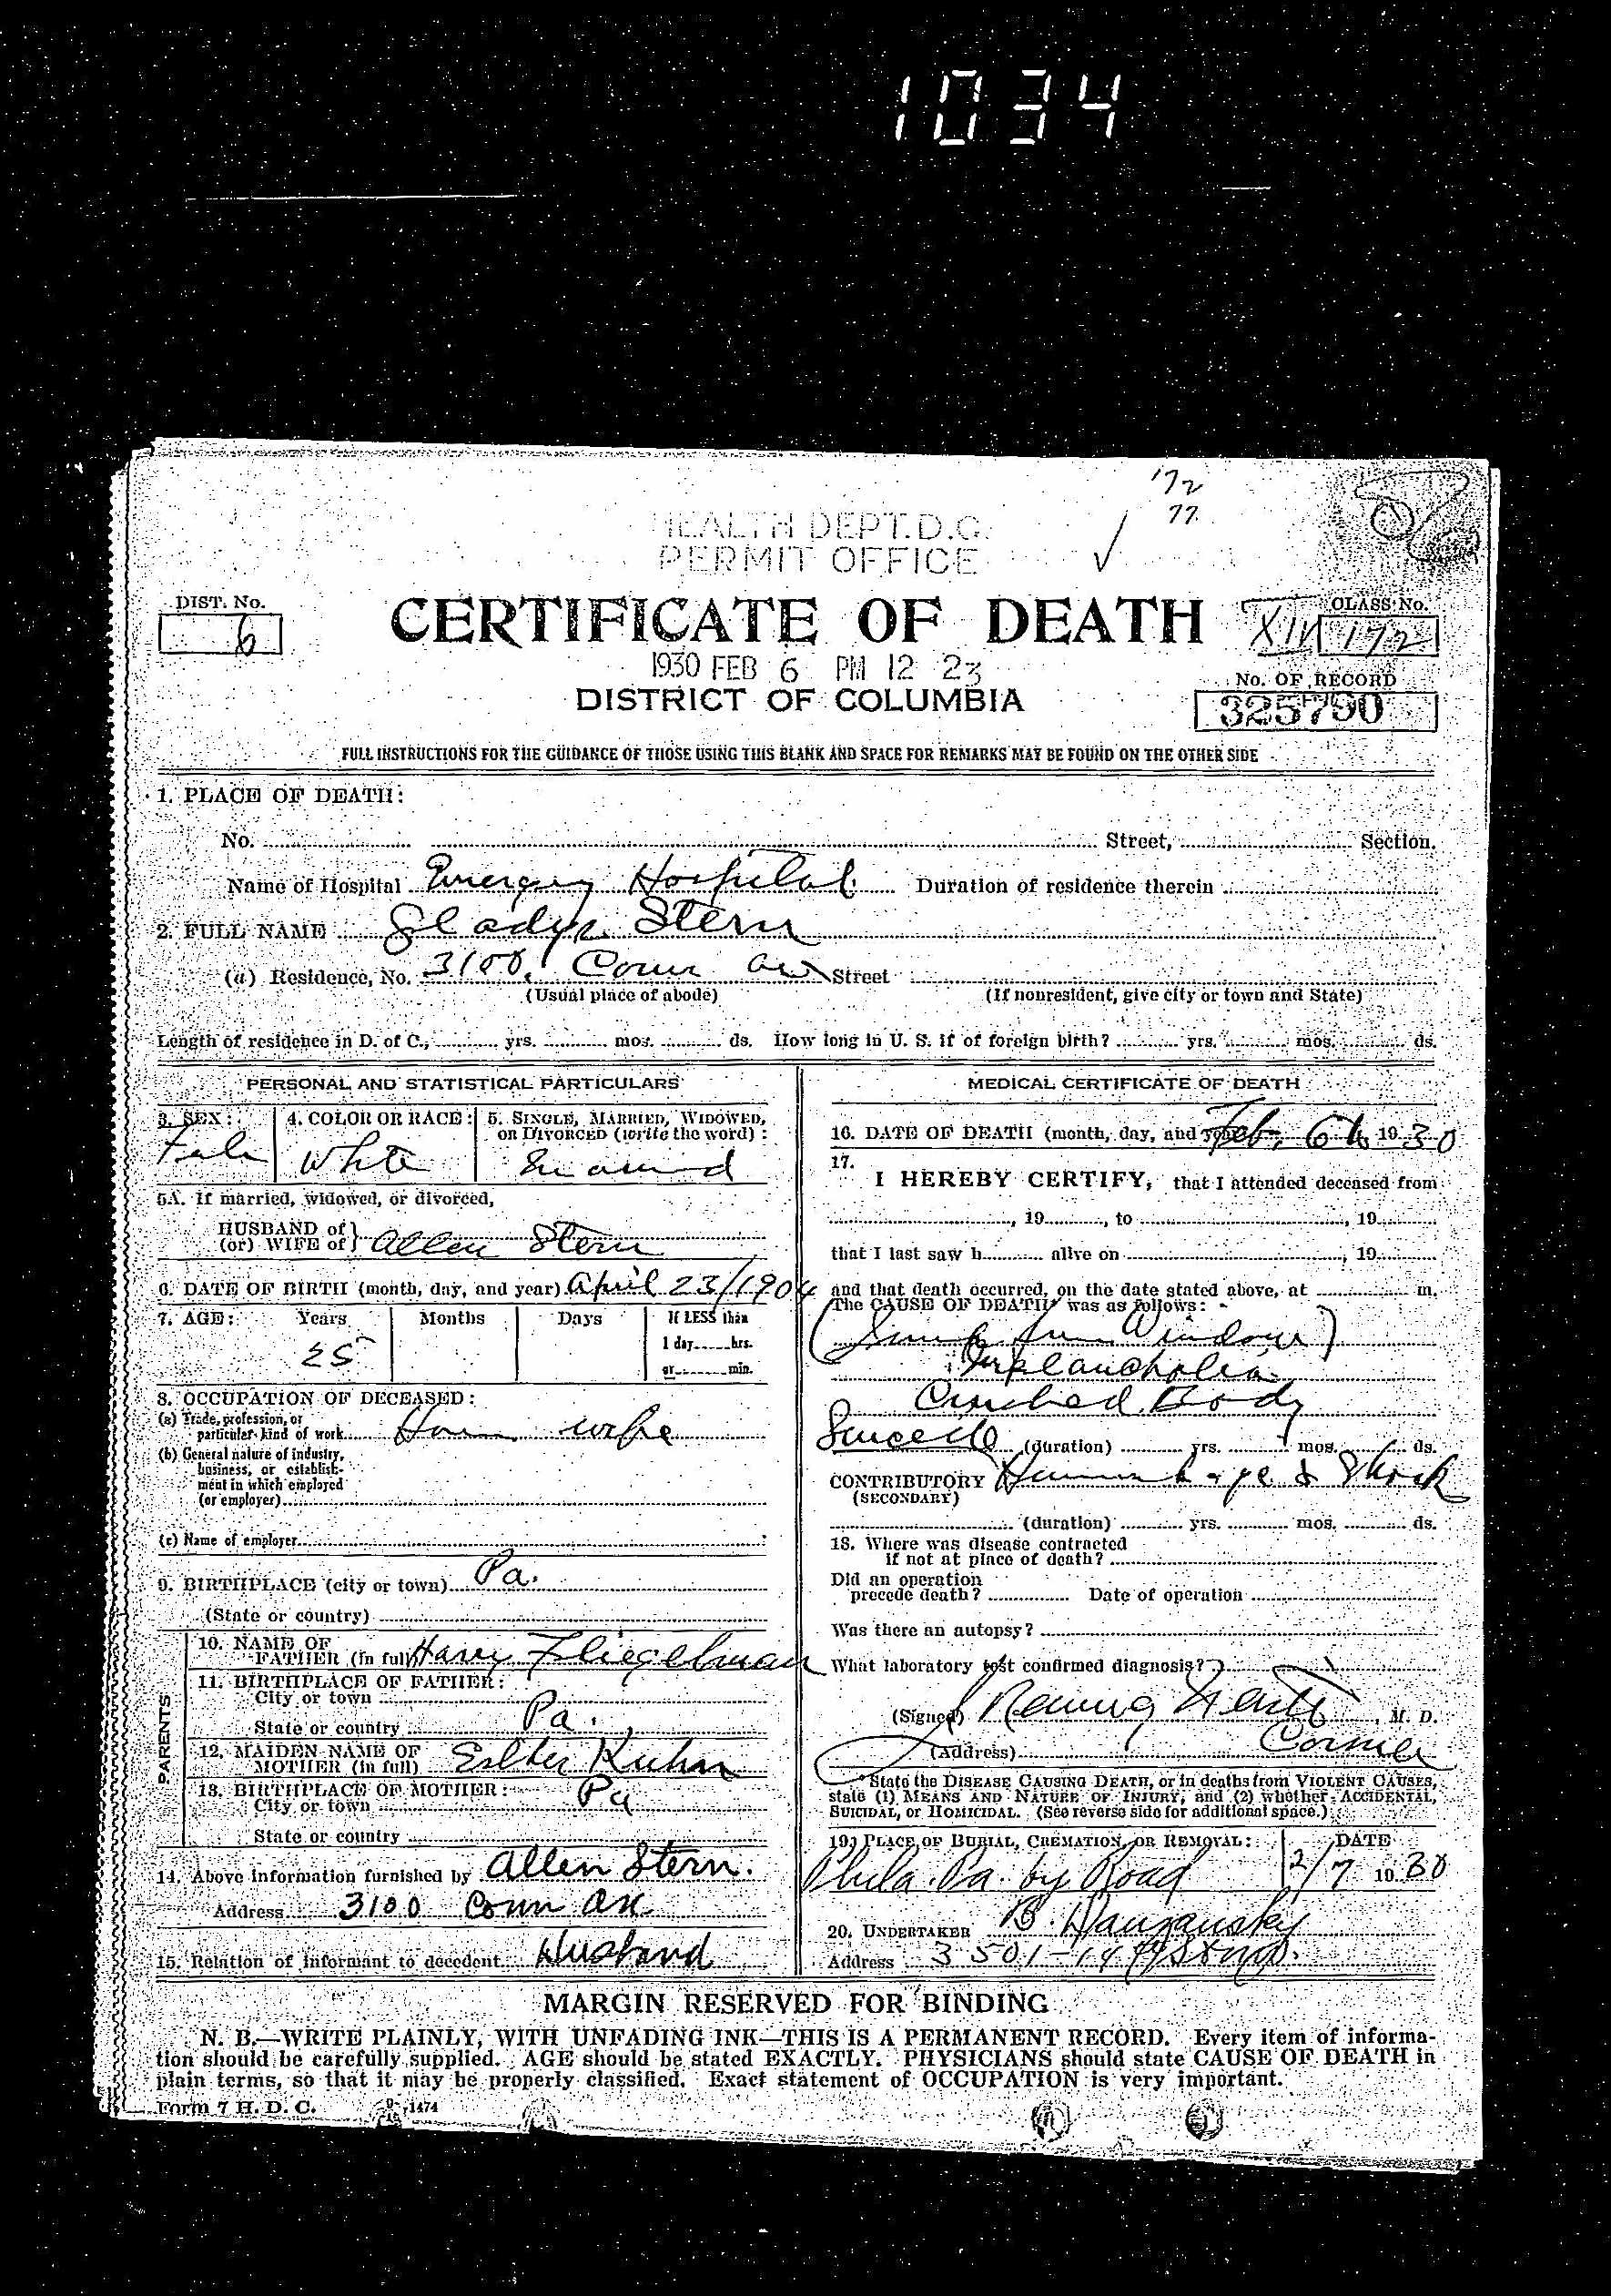 1034
172
77
HEALTH DEPT. D.C.
PERMIT OFFICE
DIST. No.
6
CERTIFICATE OF DEATH
CLASS No.
XIV 172
1930 FEB 6 PM 12 23
DISTRICT OF COLUMBIA
No. OF RECORD
325790
FULL INSTRUCTIONS FOR THE GUIDANCE OF THOSE USING THIS BLANK AND SPACE FOR REMARKS MAY BE FOUND ON THE OTHER SIDE
1. PLACE OF DEATH:
No. Street, Section.
Name of Hospital Emergency Hospital Duration of residence therein
2. FULL NAME Gladys Stern
(a) Residence, No. 3100 Conn Ave Street
(Usual place of abode) (If nonresident, give city or town and State)
Length of residence in D. of C., yrs. mos. ds. How long in U. S. if of foreign birth? yrs. mos. ds.
PERSONAL AND STATISTICAL PARTICULARS
3. SEX: 4. COLOR OR RACE: 5. SINGLE, MARRIED, WIDOWED, OR DIVORCED (write the word):
White Married
5A. If married, widowed, or divorced,
HUSBAND of
(or) WIFE of Allen Stern
6. DATE OF BIRTH (month, day, and year) April 23/1904
7. AGE: Years Months Days If LESS than
1 day hrs.
25
or min.
8. OCCUPATION OF DECEASED:
(a) Trade, profession, or
particular kind of work House wife
(b) General nature of industry,
business, or establish-
ment in which employed
(or employer)
(c) Name of employer
9. BIRTHPLACE (city or town) Pa.
(State or country)
PARENTS
10. NAME OF
FATHER (in full) Harry Fliegelman
11. BIRTHPLACE OF FATHER:
City or town
State or country Pa.
12. MAIDEN NAME OF
MOTHER (in full) Esther Kuhn
13. BIRTHPLACE OF MOTHER:
City or town Pa
State or country
14. Above information furnished by Allen Stern.
Address 3100 Conn Ave
15. Relation of informant to decedent Husband
MEDICAL CERTIFICATE OF DEATH
16. DATE OF DEATH (month, day, and year) Feb. 6th 1930
17.
I HEREBY CERTIFY, that I attended deceased from
, 19 , to , 19
that I last saw h alive on , 19
and that death occurred, on the date stated above, at m.
The CAUSE OF DEATH* was as follows:
(Jump from Window)
Melancholia
Crushed Body
Suicide (duration) yrs. mos. ds.
CONTRIBUTORY Hemorrhage & Shock
(SECONDARY)
(duration) yrs. mos. ds.
18. Where was disease contracted
if not at place of death?
Did an operation
precede death? Date of operation
Was there an autopsy?
What laboratory test confirmed diagnosis?
(Signed) , M. D.
(Address) Coroner
*State the DISEASE CAUSING DEATH, or in deaths from VIOLENT CAUSES,
state (1) MEANS AND NATURE OF INJURY, and (2) whether ACCIDENTAL,
SUICIDAL, or HOMICIDAL. (See reverse side for additional space.)
19. PLACE OF BURIAL, CREMATION, OR REMOVAL: DATE
Phila. Pa. by Road 2/7 1930
20. UNDERTAKER B. Danzansky
Address 3501-14th St NW.
MARGIN RESERVED FOR BINDING
N. B.—WRITE PLAINLY, WITH UNFADING INK—THIS IS A PERMANENT RECORD. Every item of informa-
tion should be carefully supplied. AGE should be stated EXACTLY. PHYSICIANS should state CAUSE OF DEATH in
plain terms, so that it may be properly classified. Exact statement of OCCUPATION is very important.
Form 7 H. D. C. 1474